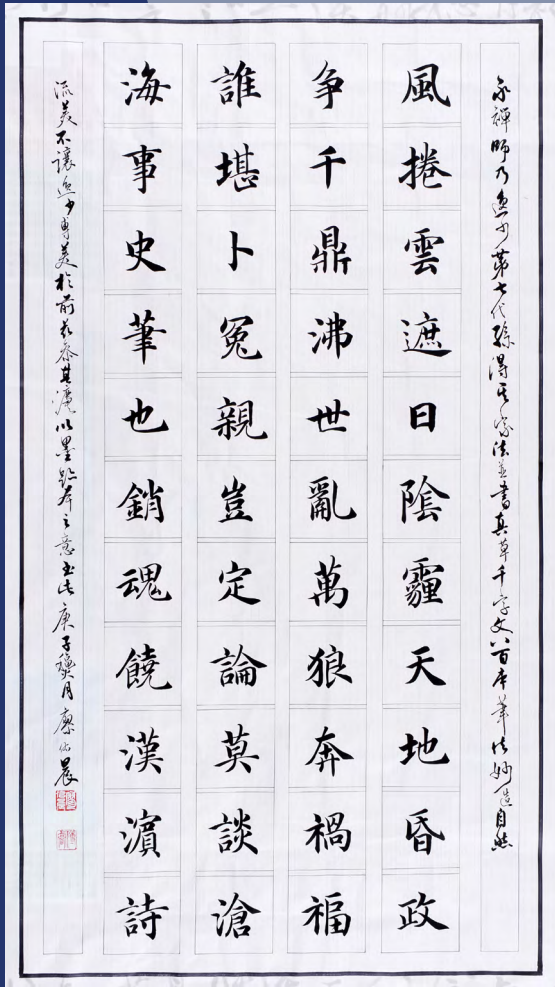 永禅師乃逸少第七代孫得其家法並書真草千字文八百本筆法妙造自然
風捲雲遮日陰霾天地昏政
争千鼎沸世亂萬狼奔禍福
誰堪卜冤親豈定論莫談滄
海事史筆也銷魂饒漢濵詩
流美不讓逸少專美於前其以墨之意書此庚子穐月廖佑晨